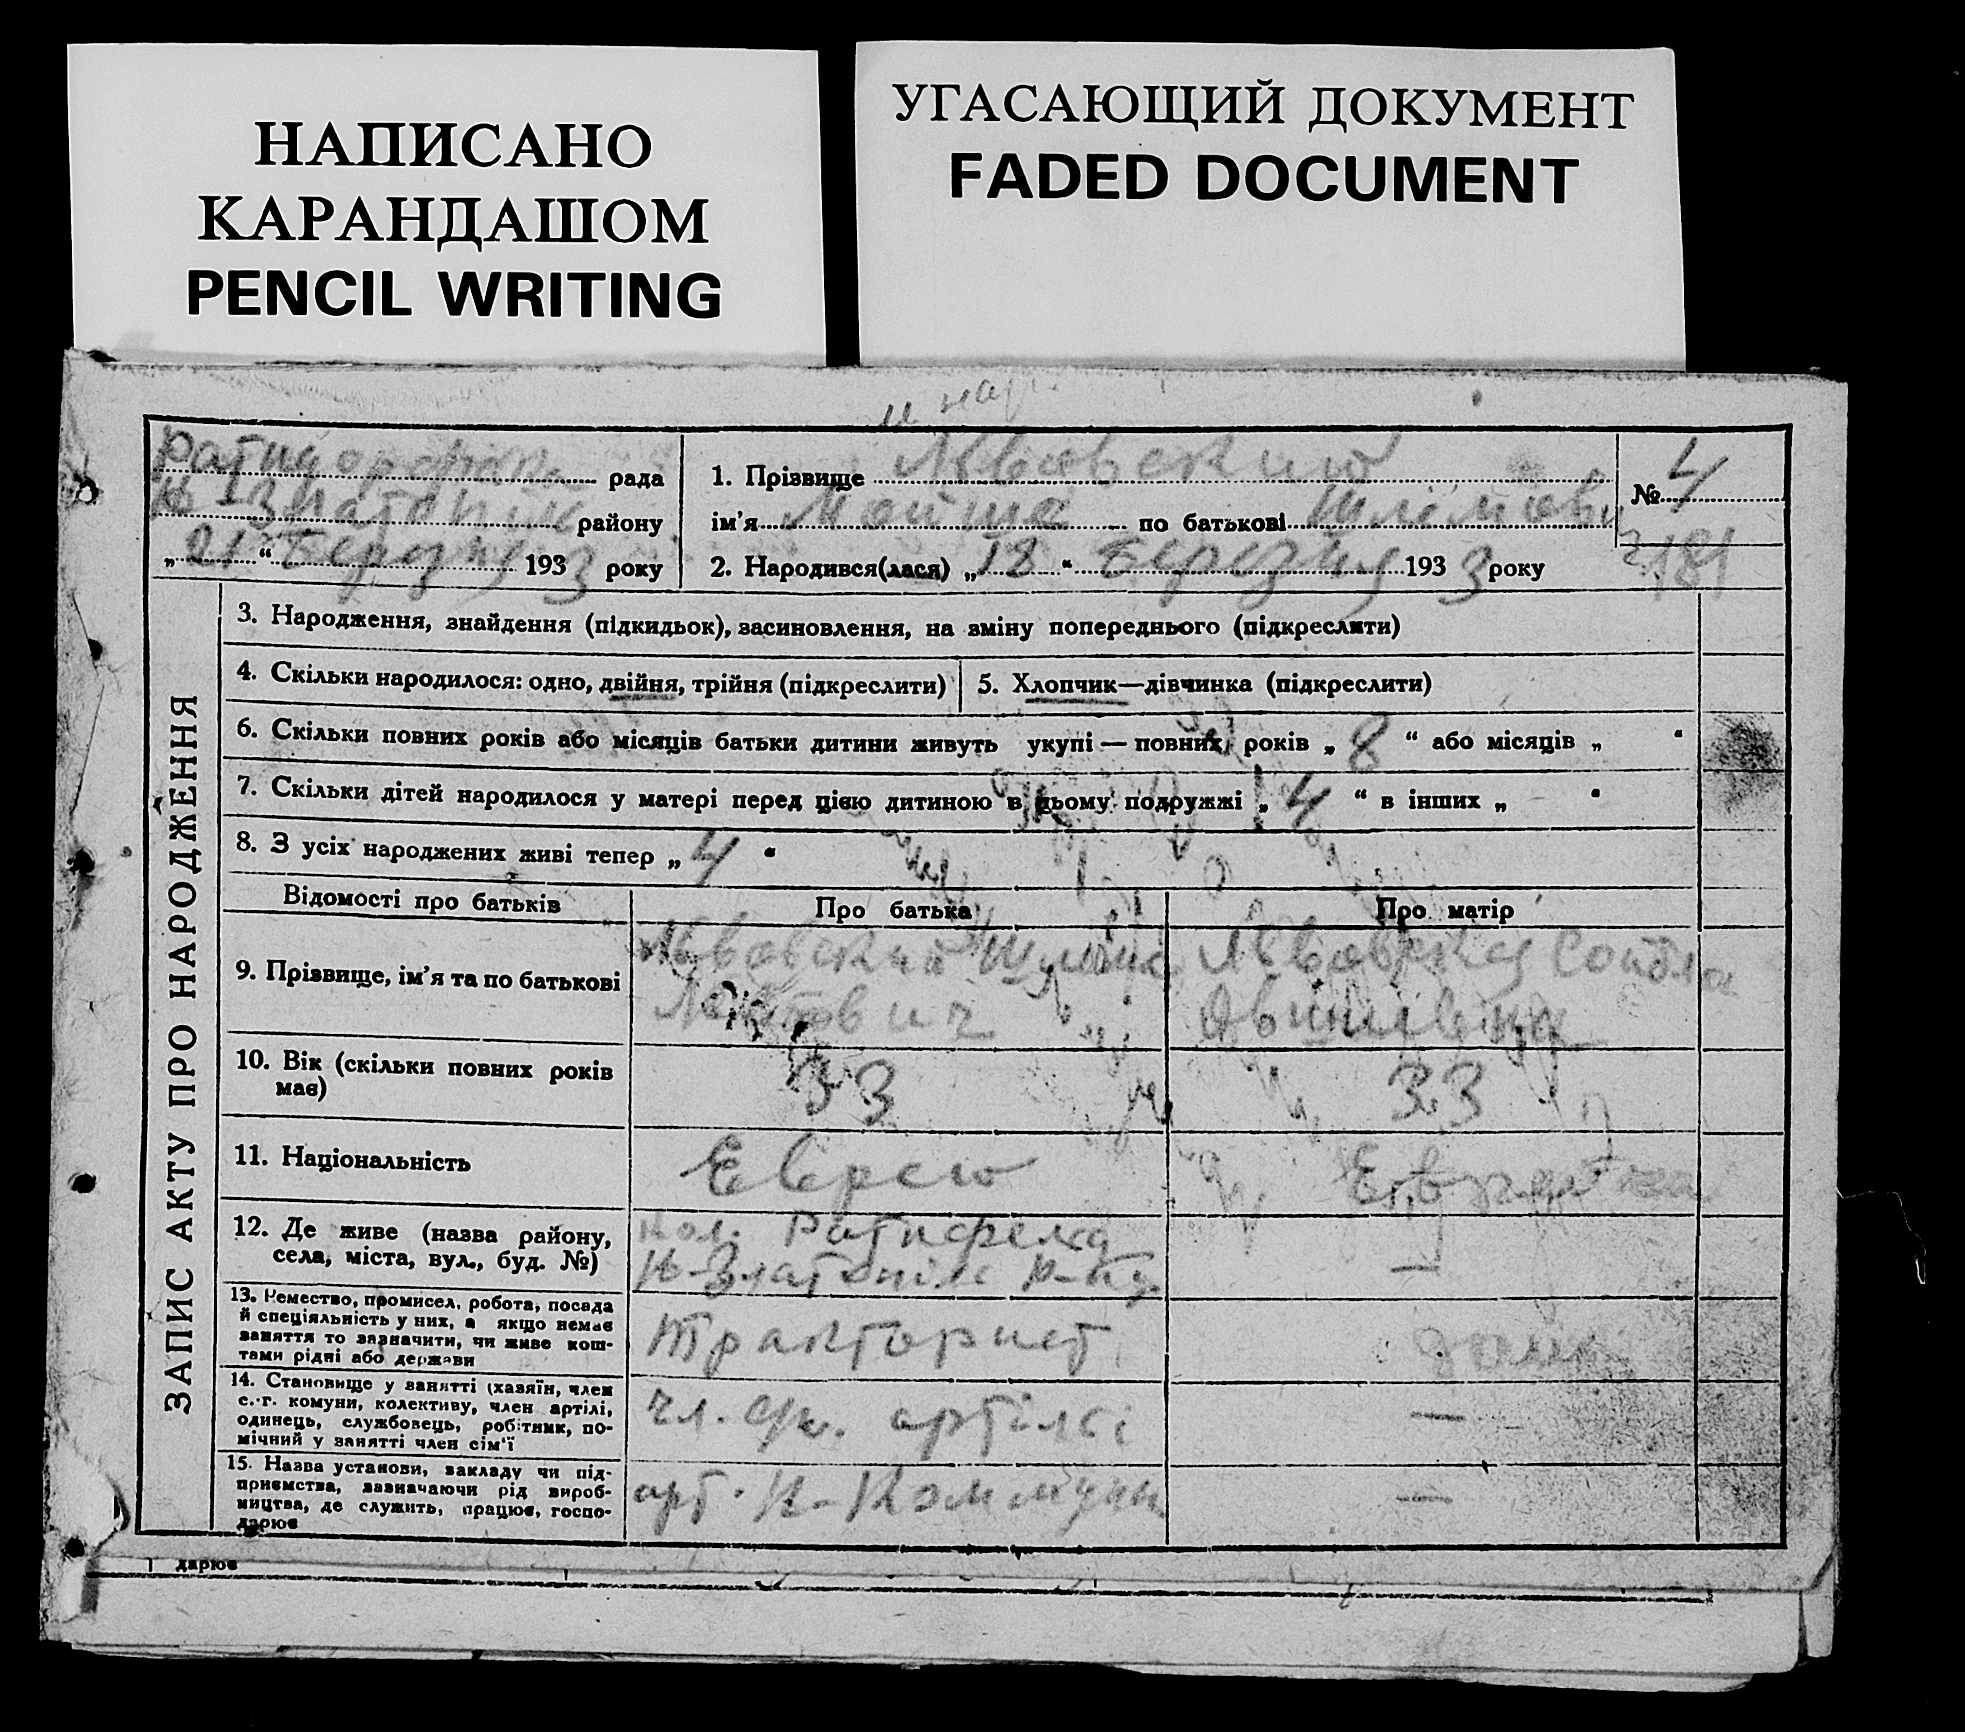 НАПИСАНО
КАРАНДАШОМ
PENCIL WRITING
УГАСАЮЩИЙ ДОКУМЕНТ
FADED DOCUMENT
рада
Н-Златопіль району
„21“ Березня 1933 року
1. Прізвище Львовский
ім’я Мойше по батькові Шлёмови
2. Народився(лася) „18“ Березня 1933 року
№ 4
ЗАПИС АКТУ ПРО НАРОДЖЕННЯ
3. Народження, знайдення (підкидьок), засиновлення, на зміну попереднього (підкреслити)
4. Скільки народилося: одно, двійня, трійня (підкреслити)
5. Хлопчик—дівчинка (підкреслити)
6. Скільки повних років або місяців батьки дитини живуть укупі — повних років „ 8 “ або місяців „ “
7. Скільки дітей народилося у матері перед цією дитиною в цьому подружжі „ 4 “ в інших „ “
8. З усіх народжених живі тепер „ 4 “
Відомості про батьків
Про батька
Про матір
9. Прізвище, ім’я та по батькові
Львовский
Львовская
10. Вік (скільки повних років
має)
33
33
11. Національність
Еврею
Еврейка
12. Де живе (назва району,
села, міста, вул., буд. №)
кол. Ратнфельд
Н-Златопіль р-ну
—
13. Ремество, промисел, робота, посада
й спеціяльність у них, а якщо немає
заняття то зазначити, чи живе кош-
тами рідні або держави
Тракторист
14. Становище у занятті (хазяїн, член
с.-г. комуни, колективу, член артілі,
одинець, службовець, робітник, по-
мічний у занятті член сім’ї
чл. артілі
—
15. Назва установи, закладу чи під-
приємства, зазначаючи рід вироб-
ництва, де служить, працює, госпо-
дарює
арт.
—
дарює